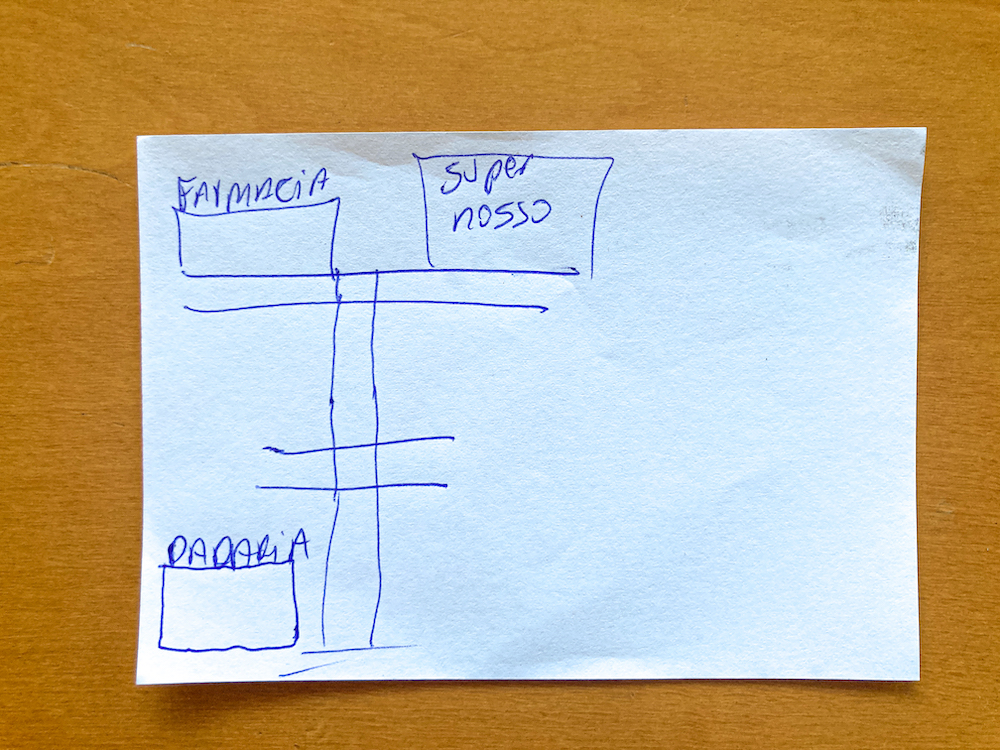 FARMACiA
super
nosso
PADARiA